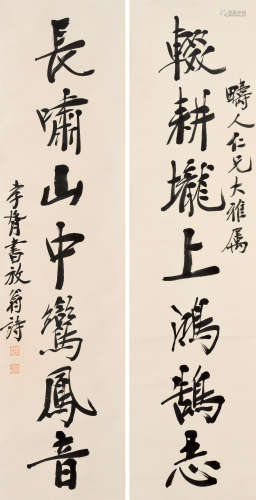 疇人仁兄大雅属
輟耕壠上鴻鵠志
長嘯山中鸞鳳音
孝胥書放翁詩